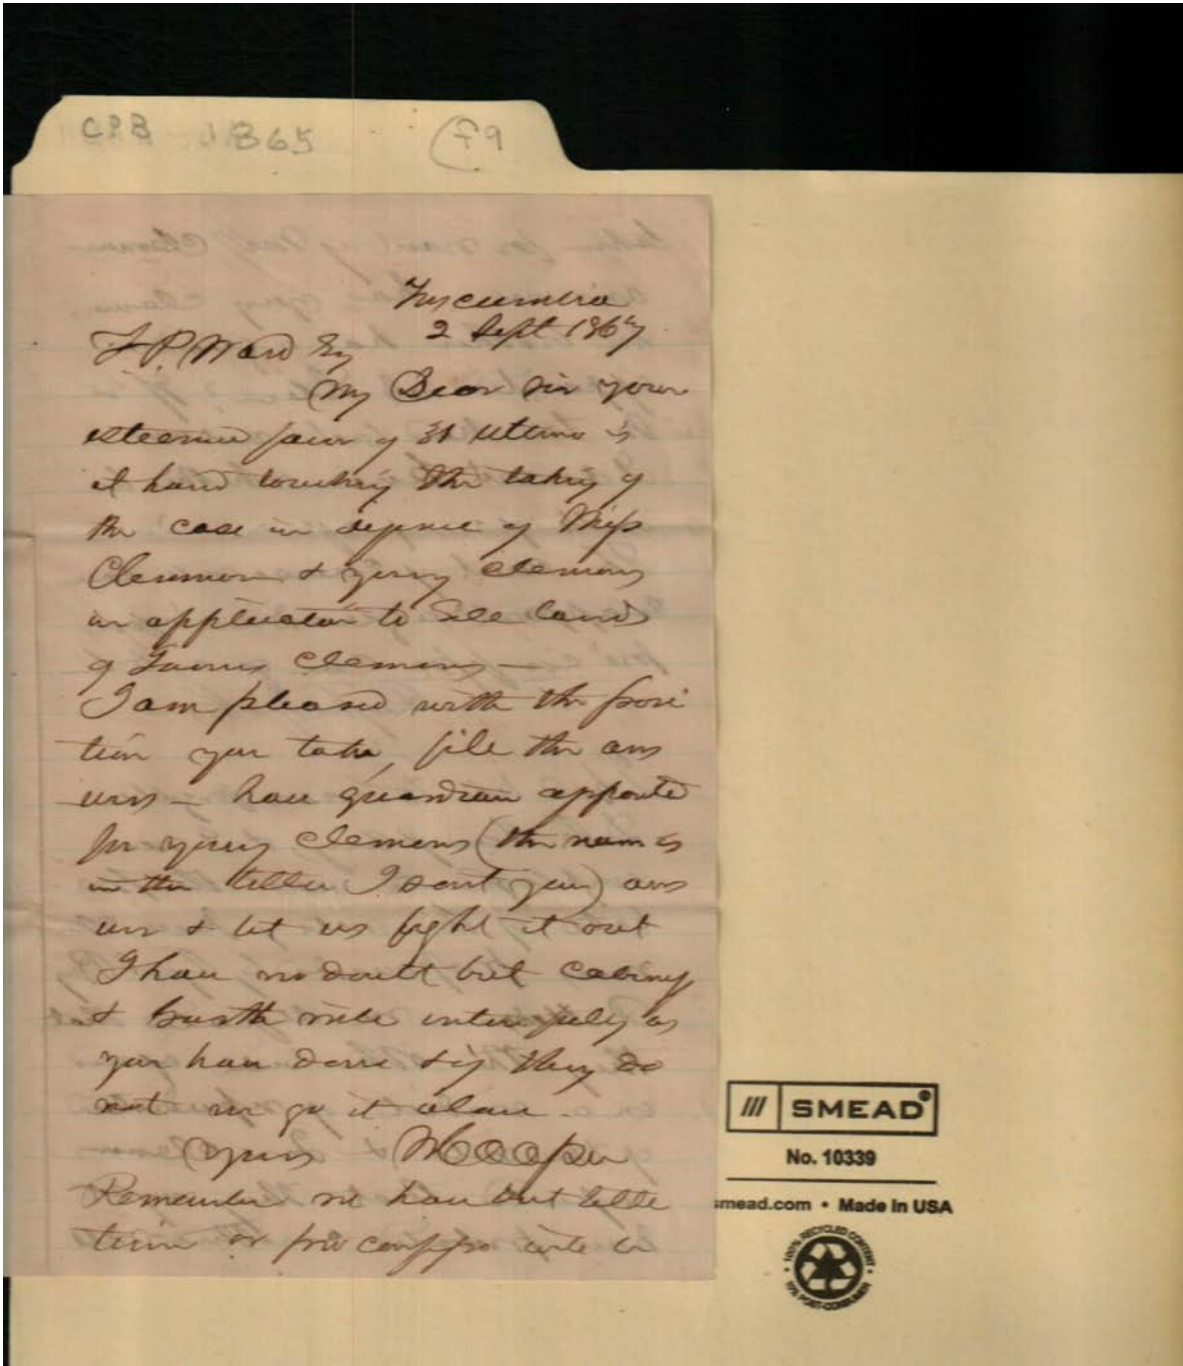 CPB 1865 F9
Tuscumbia
2 Sept 1867
P. Ward Esq
My Dear Sir your
esteemed favor of 31 ultimo is
at hand touching the taking of
the case in defence of Miss
Clemmons & young Clemens
in application to sell land
of James Clemens —
I am pleased with the posi
tion you take, file the ans
wers — have guardian appointed
for young Clemens (the name is
in the letter I sent you) ans
wer & let us fight it out
I have no doubt but
& will interpose as
you have done & if they do
not we go it alone.
Yours Cooper
Remember we have but little
time or pro confesso will be
SMEAD®
No. 10339
smead.com • Made in USA
100% RECYCLED CONTENT
10% POST-CONSUMER